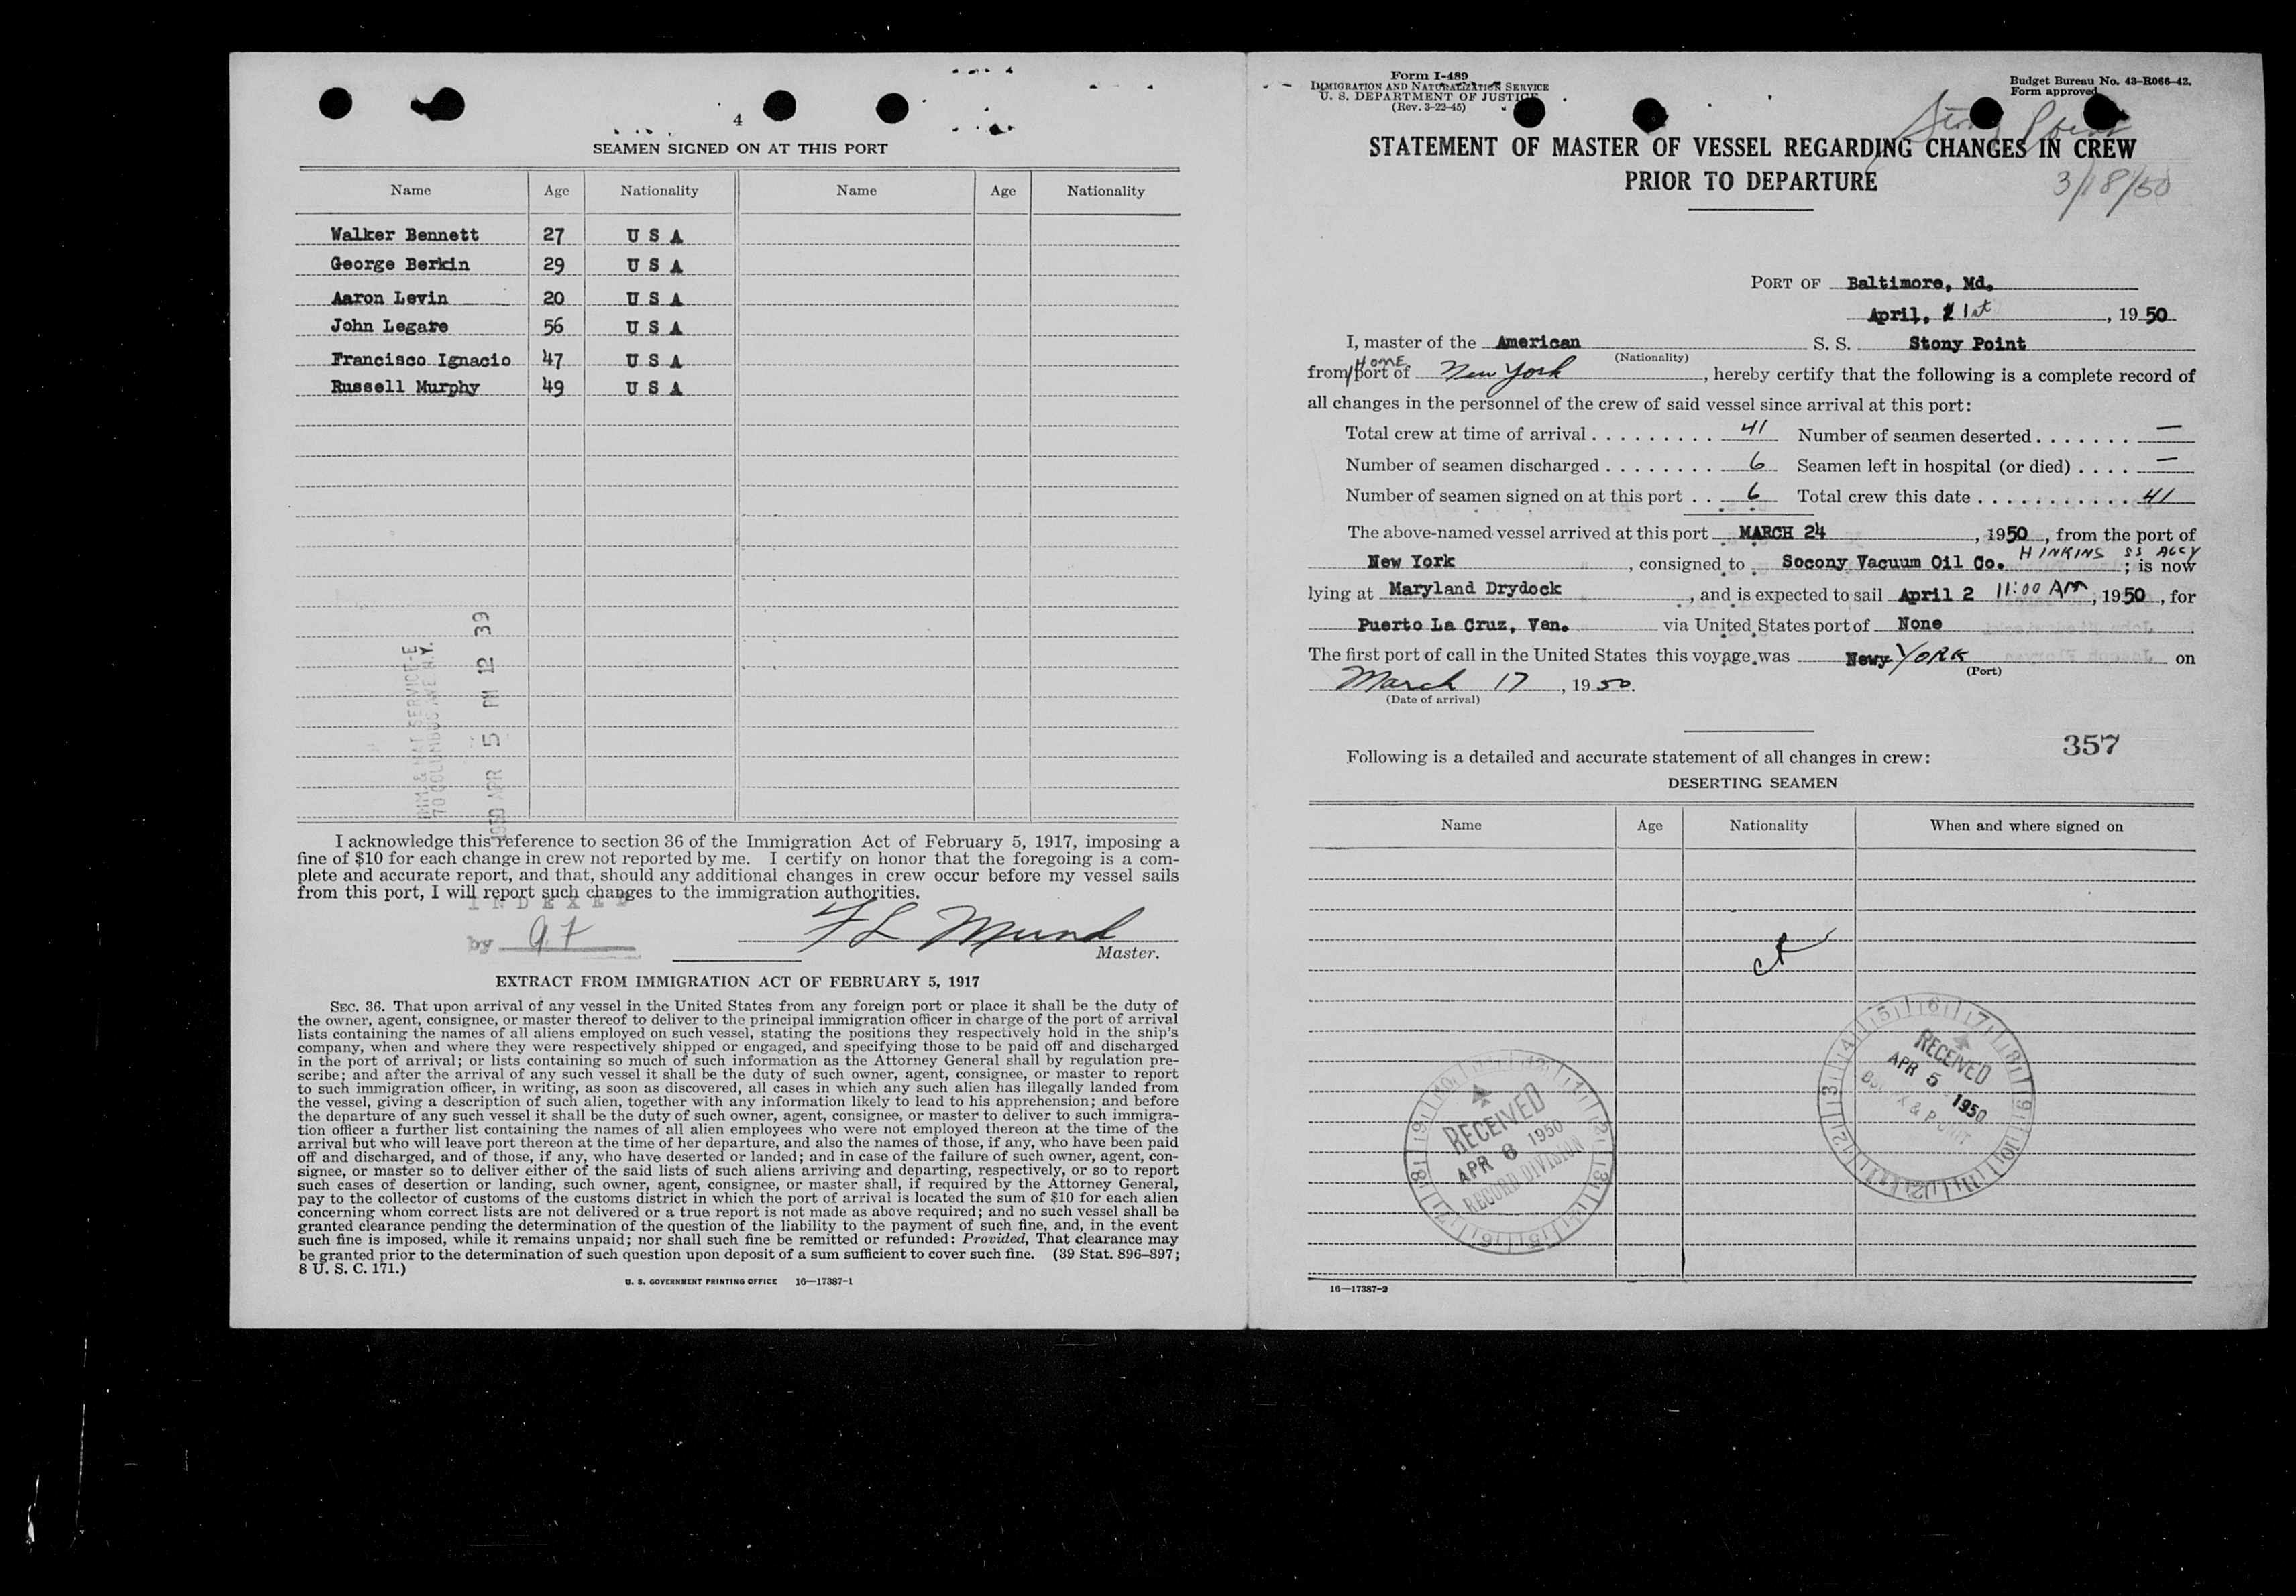 4
SEAMEN SIGNED ON AT THIS PORT
Name Age Nationality Name Age Nationality
Walker Bennett 27 U S A
George Berkin 29 U S A
Aaron Levin 20 U S A
John Legare 56 U S A
Francisco Ignacio 47 U S A
Russell Murphy 49 U S A
IMM & NAT SERVICE-E
70 COLUMBUS AVE N.Y.
1950 APR 5 PM 12 39
I acknowledge this reference to section 36 of the Immigration Act of February 5, 1917, imposing a
fine of $10 for each change in crew not reported by me. I certify on honor that the foregoing is a com-
plete and accurate report, and that, should any additional changes in crew occur before my vessel sails
from this port, I will report such changes to the immigration authorities.
INDEXED
by
F L Mund
Master.
EXTRACT FROM IMMIGRATION ACT OF FEBRUARY 5, 1917
SEC. 36. That upon arrival of any vessel in the United States from any foreign port or place it shall be the duty of
the owner, agent, consignee, or master thereof to deliver to the principal immigration officer in charge of the port of arrival
lists containing the names of all aliens employed on such vessel, stating the positions they respectively hold in the ship's
company, when and where they were respectively shipped or engaged, and specifying those to be paid off and discharged
in the port of arrival; or lists containing so much of such information as the Attorney General shall by regulation pre-
scribe; and after the arrival of any such vessel it shall be the duty of such owner, agent, consignee, or master to report
to such immigration officer, in writing, as soon as discovered, all cases in which any such alien has illegally landed from
the vessel, giving a description of such alien, together with any information likely to lead to his apprehension; and before
the departure of any such vessel it shall be the duty of such owner, agent, consignee, or master to deliver to such immigra-
tion officer a further list containing the names of all alien employees who were not employed thereon at the time of the
arrival but who will leave port thereon at the time of her departure, and also the names of those, if any, who have been paid
off and discharged, and of those, if any, who have deserted or landed; and in case of the failure of such owner, agent, con-
signee, or master so to deliver either of the said lists of such aliens arriving and departing, respectively, or so to report
such cases of desertion or landing, such owner, agent, consignee, or master shall, if required by the Attorney General,
pay to the collector of customs of the customs district in which the port of arrival is located the sum of $10 for each alien
concerning whom correct lists are not delivered or a true report is not made as above required; and no such vessel shall be
granted clearance pending the determination of the question of the liability to the payment of such fine, and, in the event
such fine is imposed, while it remains unpaid; nor shall such fine be remitted or refunded: Provided, That clearance may
be granted prior to the determination of such question upon deposit of a sum sufficient to cover such fine. (39 Stat. 896-897;
8 U. S. C. 171.)
U. S. GOVERNMENT PRINTING OFFICE 16—17387-1
Form I-489
IMMIGRATION AND NATURALIZATION SERVICE
U. S. DEPARTMENT OF JUSTICE
(Rev. 3-22-45)
Budget Bureau No. 43-R066-42.
Form approved
Stony Point
3/18/50
STATEMENT OF MASTER OF VESSEL REGARDING CHANGES IN CREW
PRIOR TO DEPARTURE
PORT OF Baltimore, Md.
April, 1st, 1950
I, master of the American S. S. Stony Point
(Nationality)
from/HOME port of New York, hereby certify that the following is a complete record of
all changes in the personnel of the crew of said vessel since arrival at this port:
Total crew at time of arrival . . . . . . . . . . 41 Number of seamen deserted . . . . . . . —
Number of seamen discharged . . . . . . . . 6 Seamen left in hospital (or died) . . . . —
Number of seamen signed on at this port . . 6 Total crew this date . . . . . . . . . . . 41
The above-named vessel arrived at this port MARCH 24, 1950, from the port of
HINKINS SS AGCY
New York, consigned to Socony Vacuum Oil Co.; is now
lying at Maryland Drydock, and is expected to sail April 2 11:00 AM, 1950, for
Puerto La Cruz, Ven. via United States port of None
The first port of call in the United States this voyage was Newy YORK on
(Port)
March 17, 1950.
(Date of arrival)
357
Following is a detailed and accurate statement of all changes in crew:
DESERTING SEAMEN
Name Age Nationality When and where signed on
RECEIVED
APR 5 1950
RECEIVED
APR 6 1950
RECORD DIVISION
16—17387-2